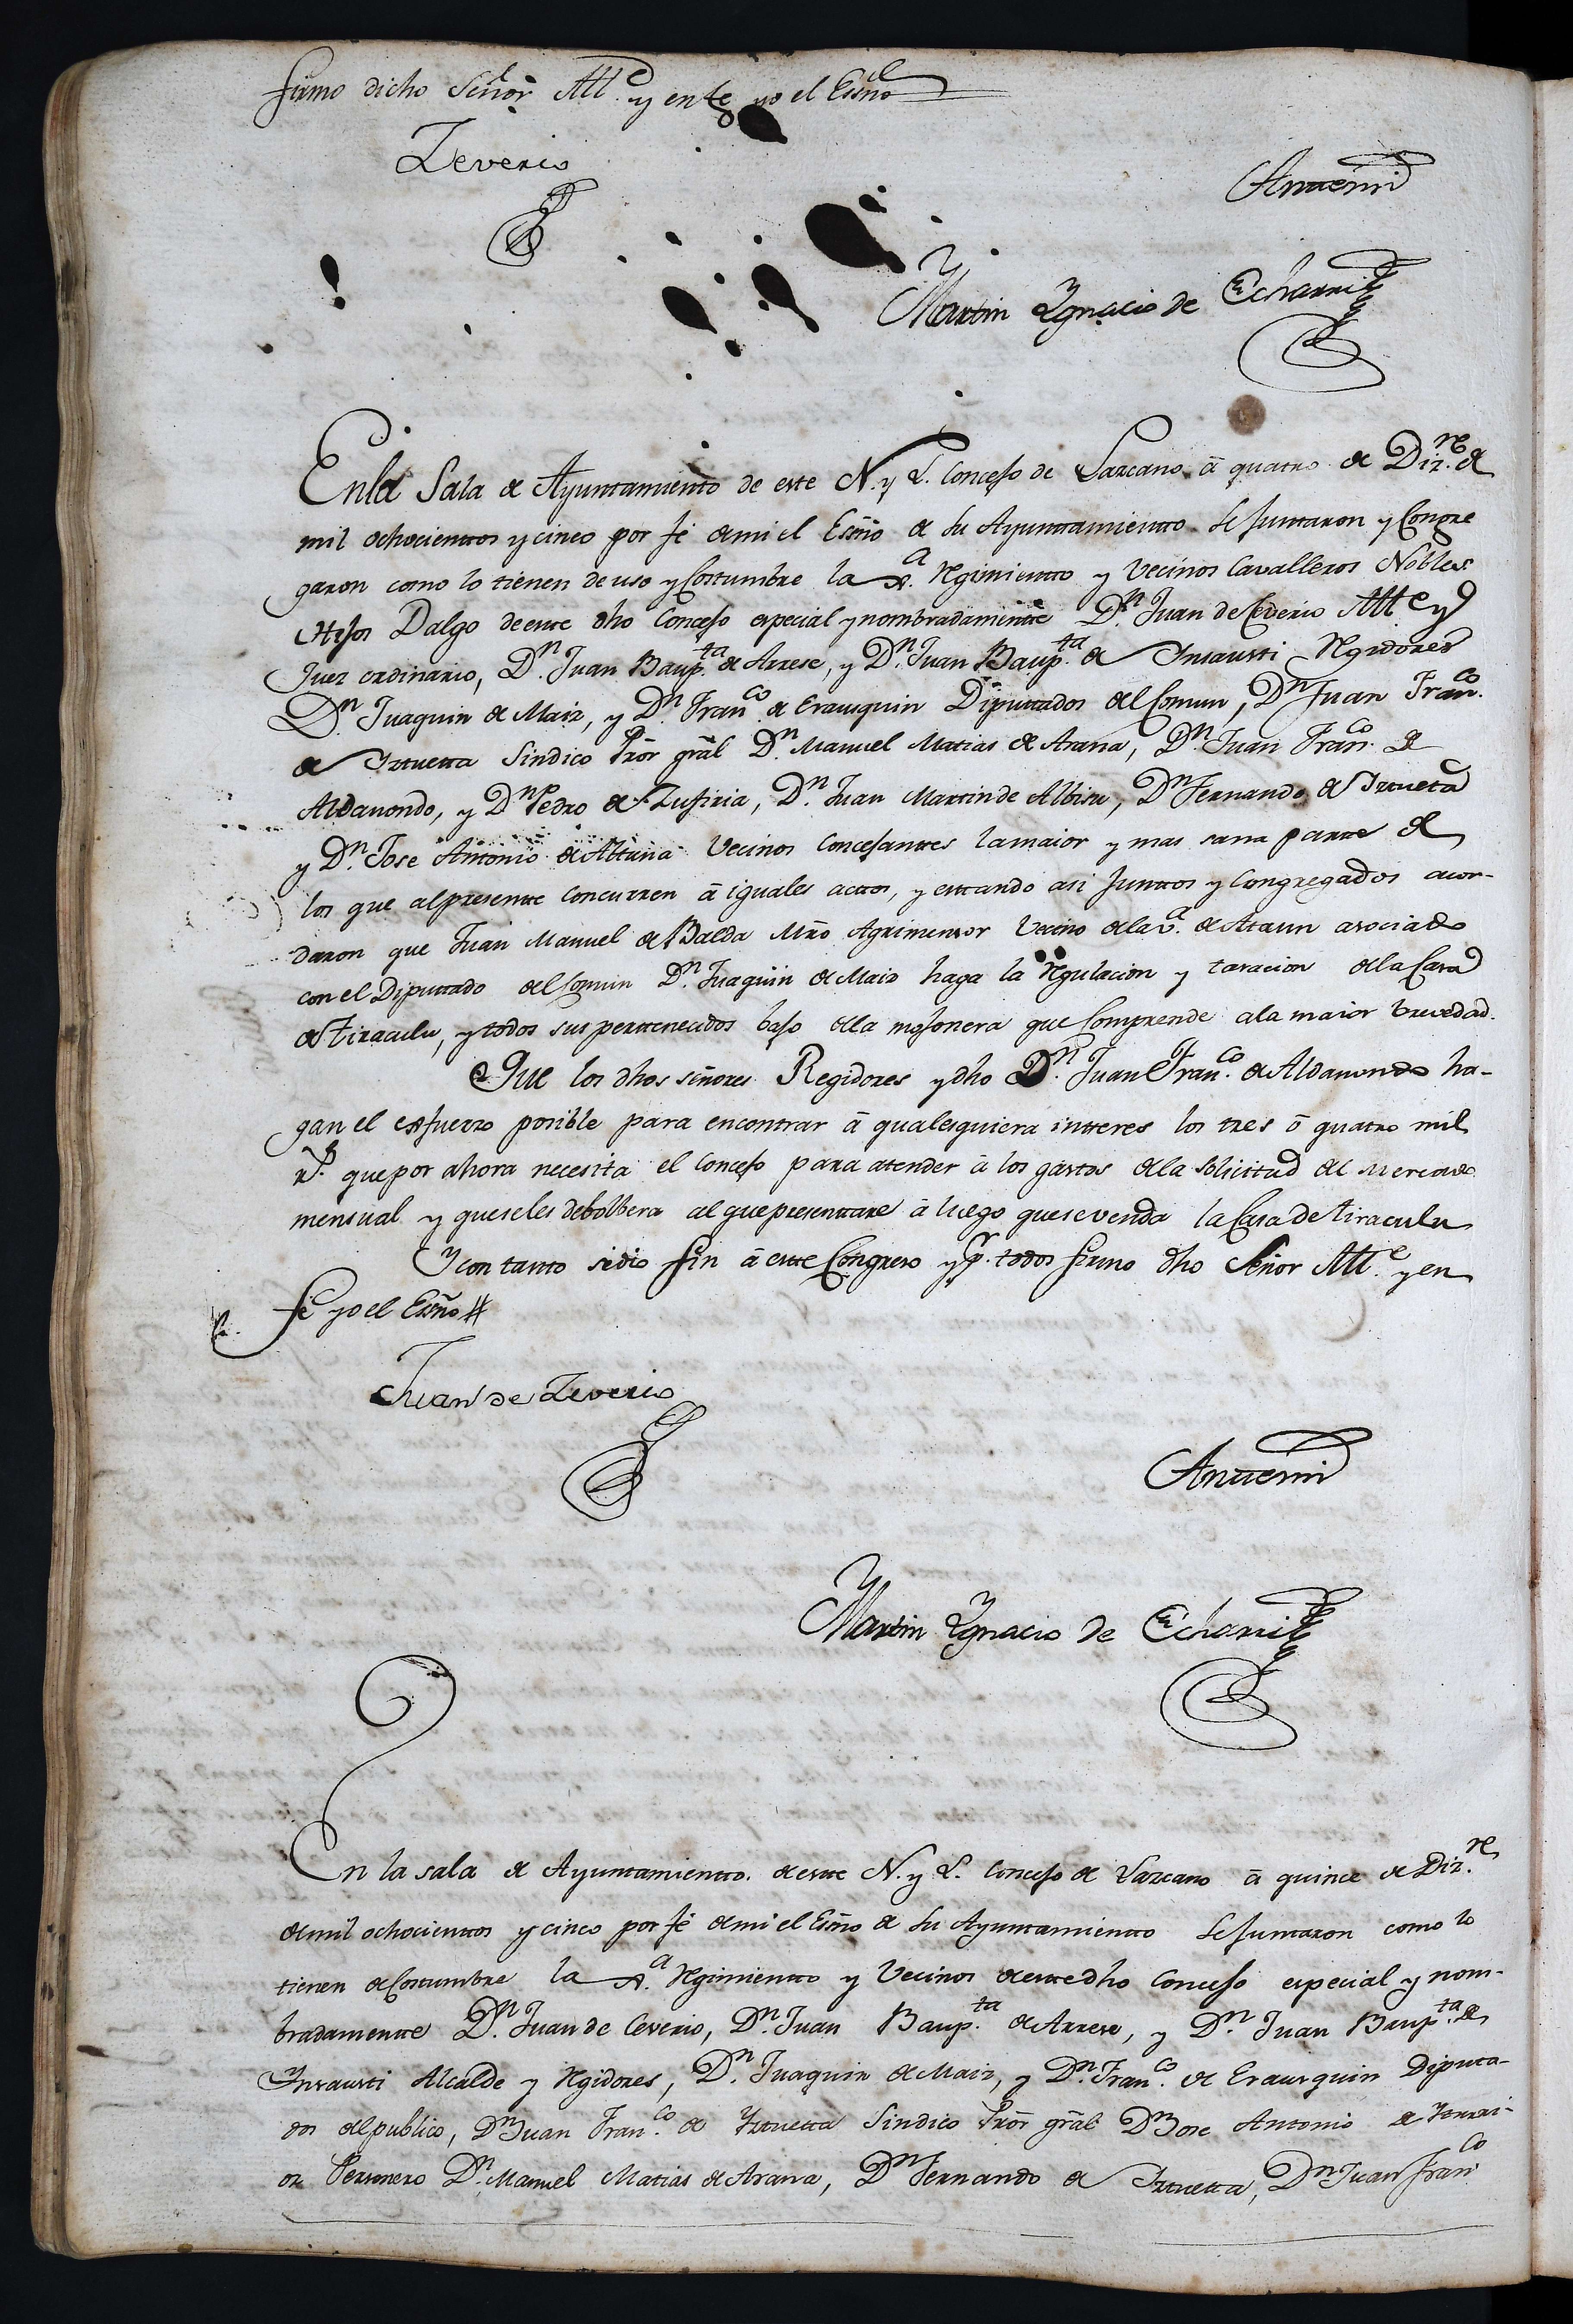 firmo dicho Señor Allᵉ. y en fe yo el Essño
Zeverio
Antemi
Martin Ygnacio de Echarri
En la Sala de Ayuntamiento de este N. y L. Concejo de Lazcano â quatro de Dizʳᵉ. de
mil ochocientos y cinco por fé de mi el Essño de su Ayunttamientto se juntaron y Congre
garon como lo tienen de uso y Costumbre la Jª. Regimientto y Vecinos Cavalleros Nobles
Hijos Dalgo de este dho Concejo especial y nombradamentte Dⁿ. Juan de Ceverio Allᵉ y
Juez ordinario, Dⁿ. Juan Baupᵗᵃ. de Arrese, y Dⁿ. Juan Baupᵗᵃ. de Insausti Regidores
Dⁿ. Juaquin de Maiz, y Dⁿ. Franᶜᵒ. de Erausquin Diputtados del Comun, Dⁿ Juan Franᶜᵒ.
de Iztuetta Sindico Prôr grâl Dⁿ. Manuel Matias de Arana, Dⁿ. Juan Franᶜᵒ. de
Aldanondo, y Dⁿ Pedro de Zufiria, Dⁿ. Juan Martin de Albisu, Dⁿ Fernando de Iztueta
y Dⁿ. Jose Antonio de Altuna Vecinos Concejantes la maior y mas sana parte de
los que al presentte concurren â iguales acttos, y estando asi junttos y Congregados acor-
daron que Juan Manuel de Balda Mrô Agrimensor Vecino de la vª. de Ataun asociado
con el Diputtado del Comun Dⁿ. Juaquin de Maiz haga la Regulacion y tasacion de la Casa
de Tiraculu, y todos sus perttenecidos bajo de la mojonera que Comprende a la maior brevedad.
Que los dhos señores Regidores y dho Dⁿ. Juan Franᶜᵒ. de Aldanondo ha-
gan el esfuerzo posible para encontrar â qualesquiera intteres los tres ô quatro mil
rˢ. que por ahora necesita el Concejo para atender â los gastos de la Solicitud del Mercado
mensual y que se les debolbera al que presenttare â luego que se venda la Casa de Tiraculu
Y con tanto se dio fin â este Congreso y pʳ. todos firmo dho Señor Allᵉ. y en
fe yo el Essño #
Juan de Zeverio
Antemi
Martin Ygnacio de Echarri
En la sala de Ayuntamientto. de este N. y L. Concejo de Lazcano â quince de Dizʳᵉ.
de mil ochocienttos y cinco por fé de mi el Essño de su Ayuntamientto se juntaron como lo
tienen de Costumbre la Jª. Regimientto y Vecinos de este dho Concejo especial y nom-
bradamentte Dⁿ. Juan de Ceverio, Dⁿ. Juan Baupᵗᵃ. de Arrese, y Dⁿ. Juan Baupᵗᵃ. de
Insausti Alcalde y Regidores, Dⁿ. Juaquin de Maiz, y Dⁿ. Franᶜᵒ. de Erausquin Diputa-
dos del publico, Dⁿ Juan Franᶜᵒ. de Iztuetta Sindico Prôr grâl Dⁿ Jose Antonio de
Personero Dⁿ. Manuel Matias de Arana, Dⁿ Fernando de Iztuetta, Dⁿ Juan Franᶜᵒ